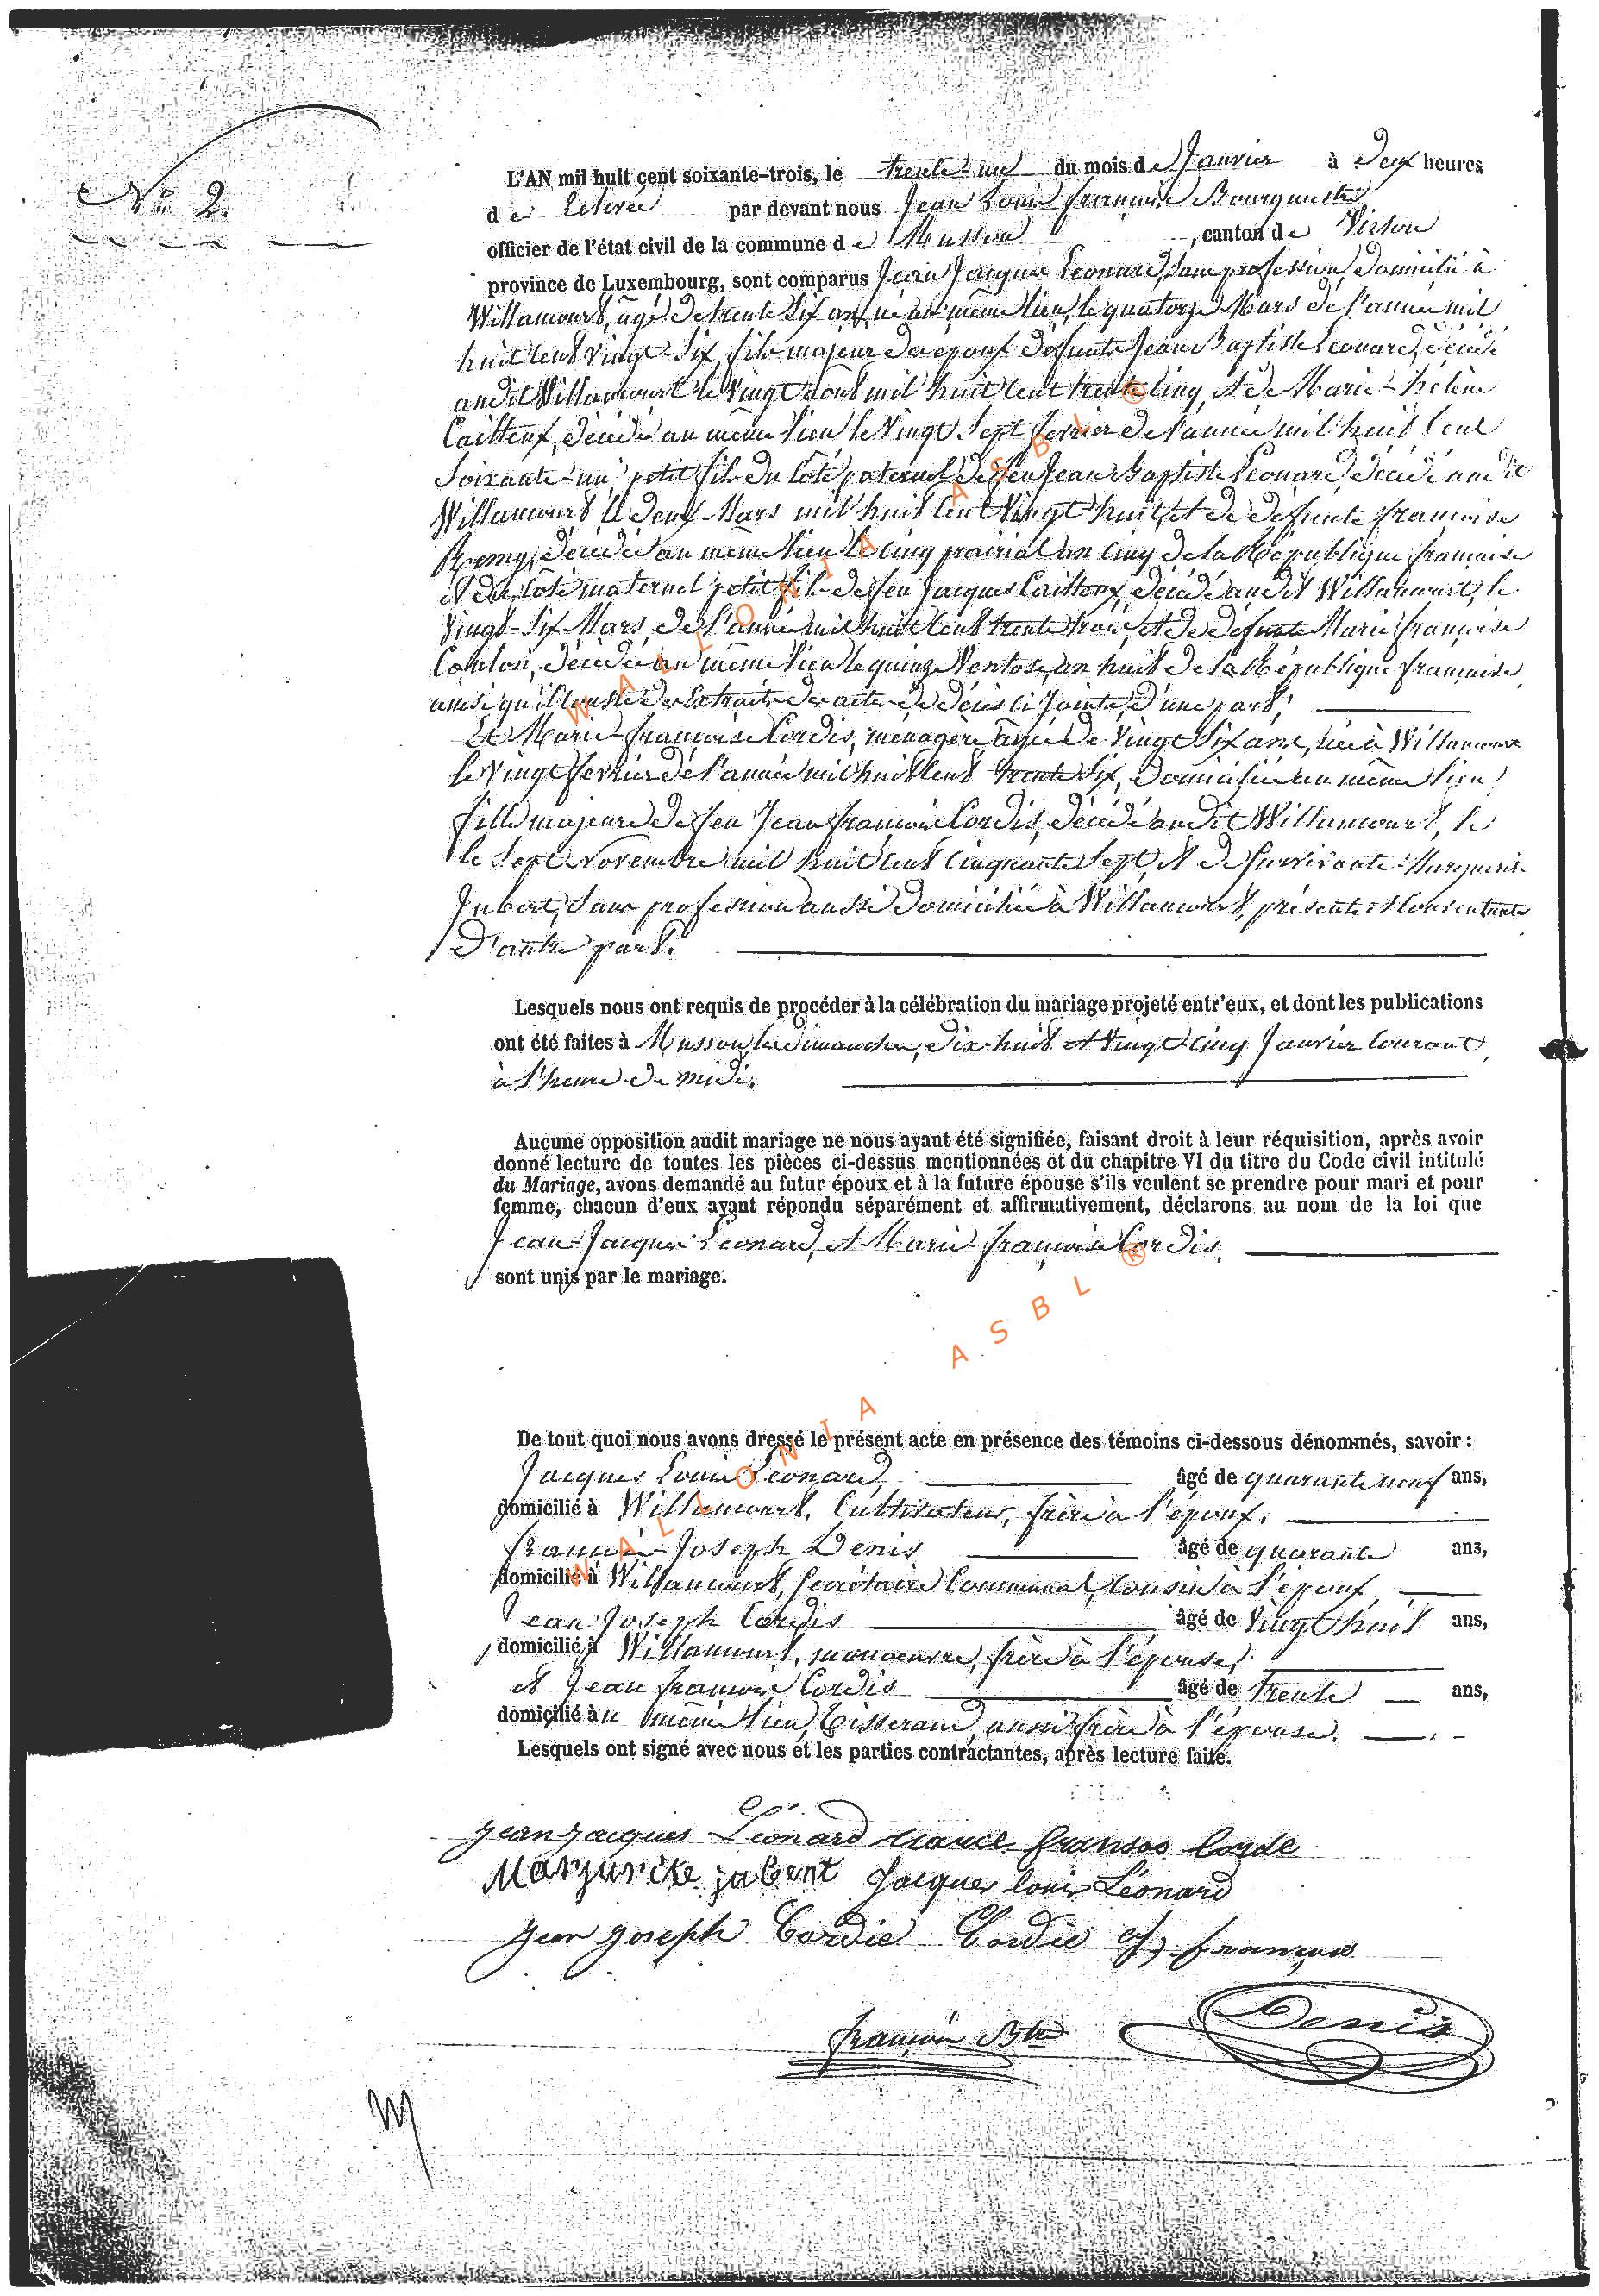 No 2.
L'AN mil huit cent soixante-trois, le trente-un du mois de Janvier à deux heures
de relevée par devant nous Jean Louis François
officier de l'état civil de la commune de Musson, canton de Virton
province de Luxembourg, sont comparus Jean Jacques Leonard, sans profession, domicilié à
Willancourt, âgé de trente six ans, né au même lieu, le quatorze Mars de l'année mil
huit cent vingt-six, fils majeur des époux défunts Jean Baptiste Leonard, décédé
audit Willancourt le vingt août mil huit cent trente cinq, et de Marie-hélène
Cailteux, décédée au même lieu le vingt sept fevrier de l'année mil huit cent
soixante-un, petit fils du côté paternel de feu Jean Baptiste Leonard, décédé audit
Willancourt le deux Mars mil huit cent vingt huit, et de défunte françoise
Remy, décédée au même lieu le cinq prairial an cinq de la République française
et du côté maternel petit fils de feu Jacques Cailteux, décédé audit Willancourt, le
vingt-six Mars de l'année mil huit cent trente trois, et de défunte Marie françoise
Conlon, décédée au même lieu le quinze Ventose an huit de la République française
ainsi qu'il conste des extraits des actes de décès ci joints, d'une part;
Et Marie-françoise Cordis, ménagère, âgée de vingt six ans, née à Willancourt
le vingt fevrier de l'année mil huit cent trente six, domiciliée au même lieu,
fille majeure de feu Jean françois Cordis, décédé audit Willancourt, le
le sept novembre mil huit cent cinquante sept, et de survivante Marguerite
Jubert, sans profession aussi domiciliée à Willancourt, présente et consentante
d'autre part.
Lesquels nous ont requis de procéder à la célébration du mariage projeté entr'eux, et dont les publications
ont été faites à Musson, les dimanches, dix-huit et vingt-cinq Janvier courant,
à l'heure de midi.
Aucune opposition audit mariage ne nous ayant été signifiée, faisant droit à leur réquisition, après avoir
donné lecture de toutes les pièces ci-dessus mentionnées et du chapitre VI du titre du Code civil intitulé
du Mariage, avons demandé au futur époux et à la future épouse s'ils veulent se prendre pour mari et pour
femme, chacun d'eux ayant répondu séparément et affirmativement, déclarons au nom de la loi que
Jean-Jacques Leonard, et Marie-françoise Cordis,
sont unis par le mariage.
De tout quoi nous avons dressé le présent acte en présence des témoins ci-dessous dénommés, savoir :
Jacques Louis Leonard, âgé de quarante neuf ans,
domicilié à Willancourt, Cultivateur, frère à l'époux.
françois-Joseph Denis âgé de quarante ans,
domicilié à Willancourt, secrétaire Communal, cousin à l'époux
Jean-Joseph Cordis âgé de vingt huit ans,
domicilié à Willancourt, manoeuvre, frère à l'épouse,
et Jean françois Cordis âgé de trente ans,
domicilié au même lieu, tisserand, aussi frère à l'épouse.
Lesquels ont signé avec nous et les parties contractantes, après lecture faite.
jean jacques Léonard marie fransos Corde
Margurite jubert Jacques louis Léonard
jean joseph Cordie Cordie françois
françois Denis
WALLONIA ASBL ®
WALLONIA ASBL ®